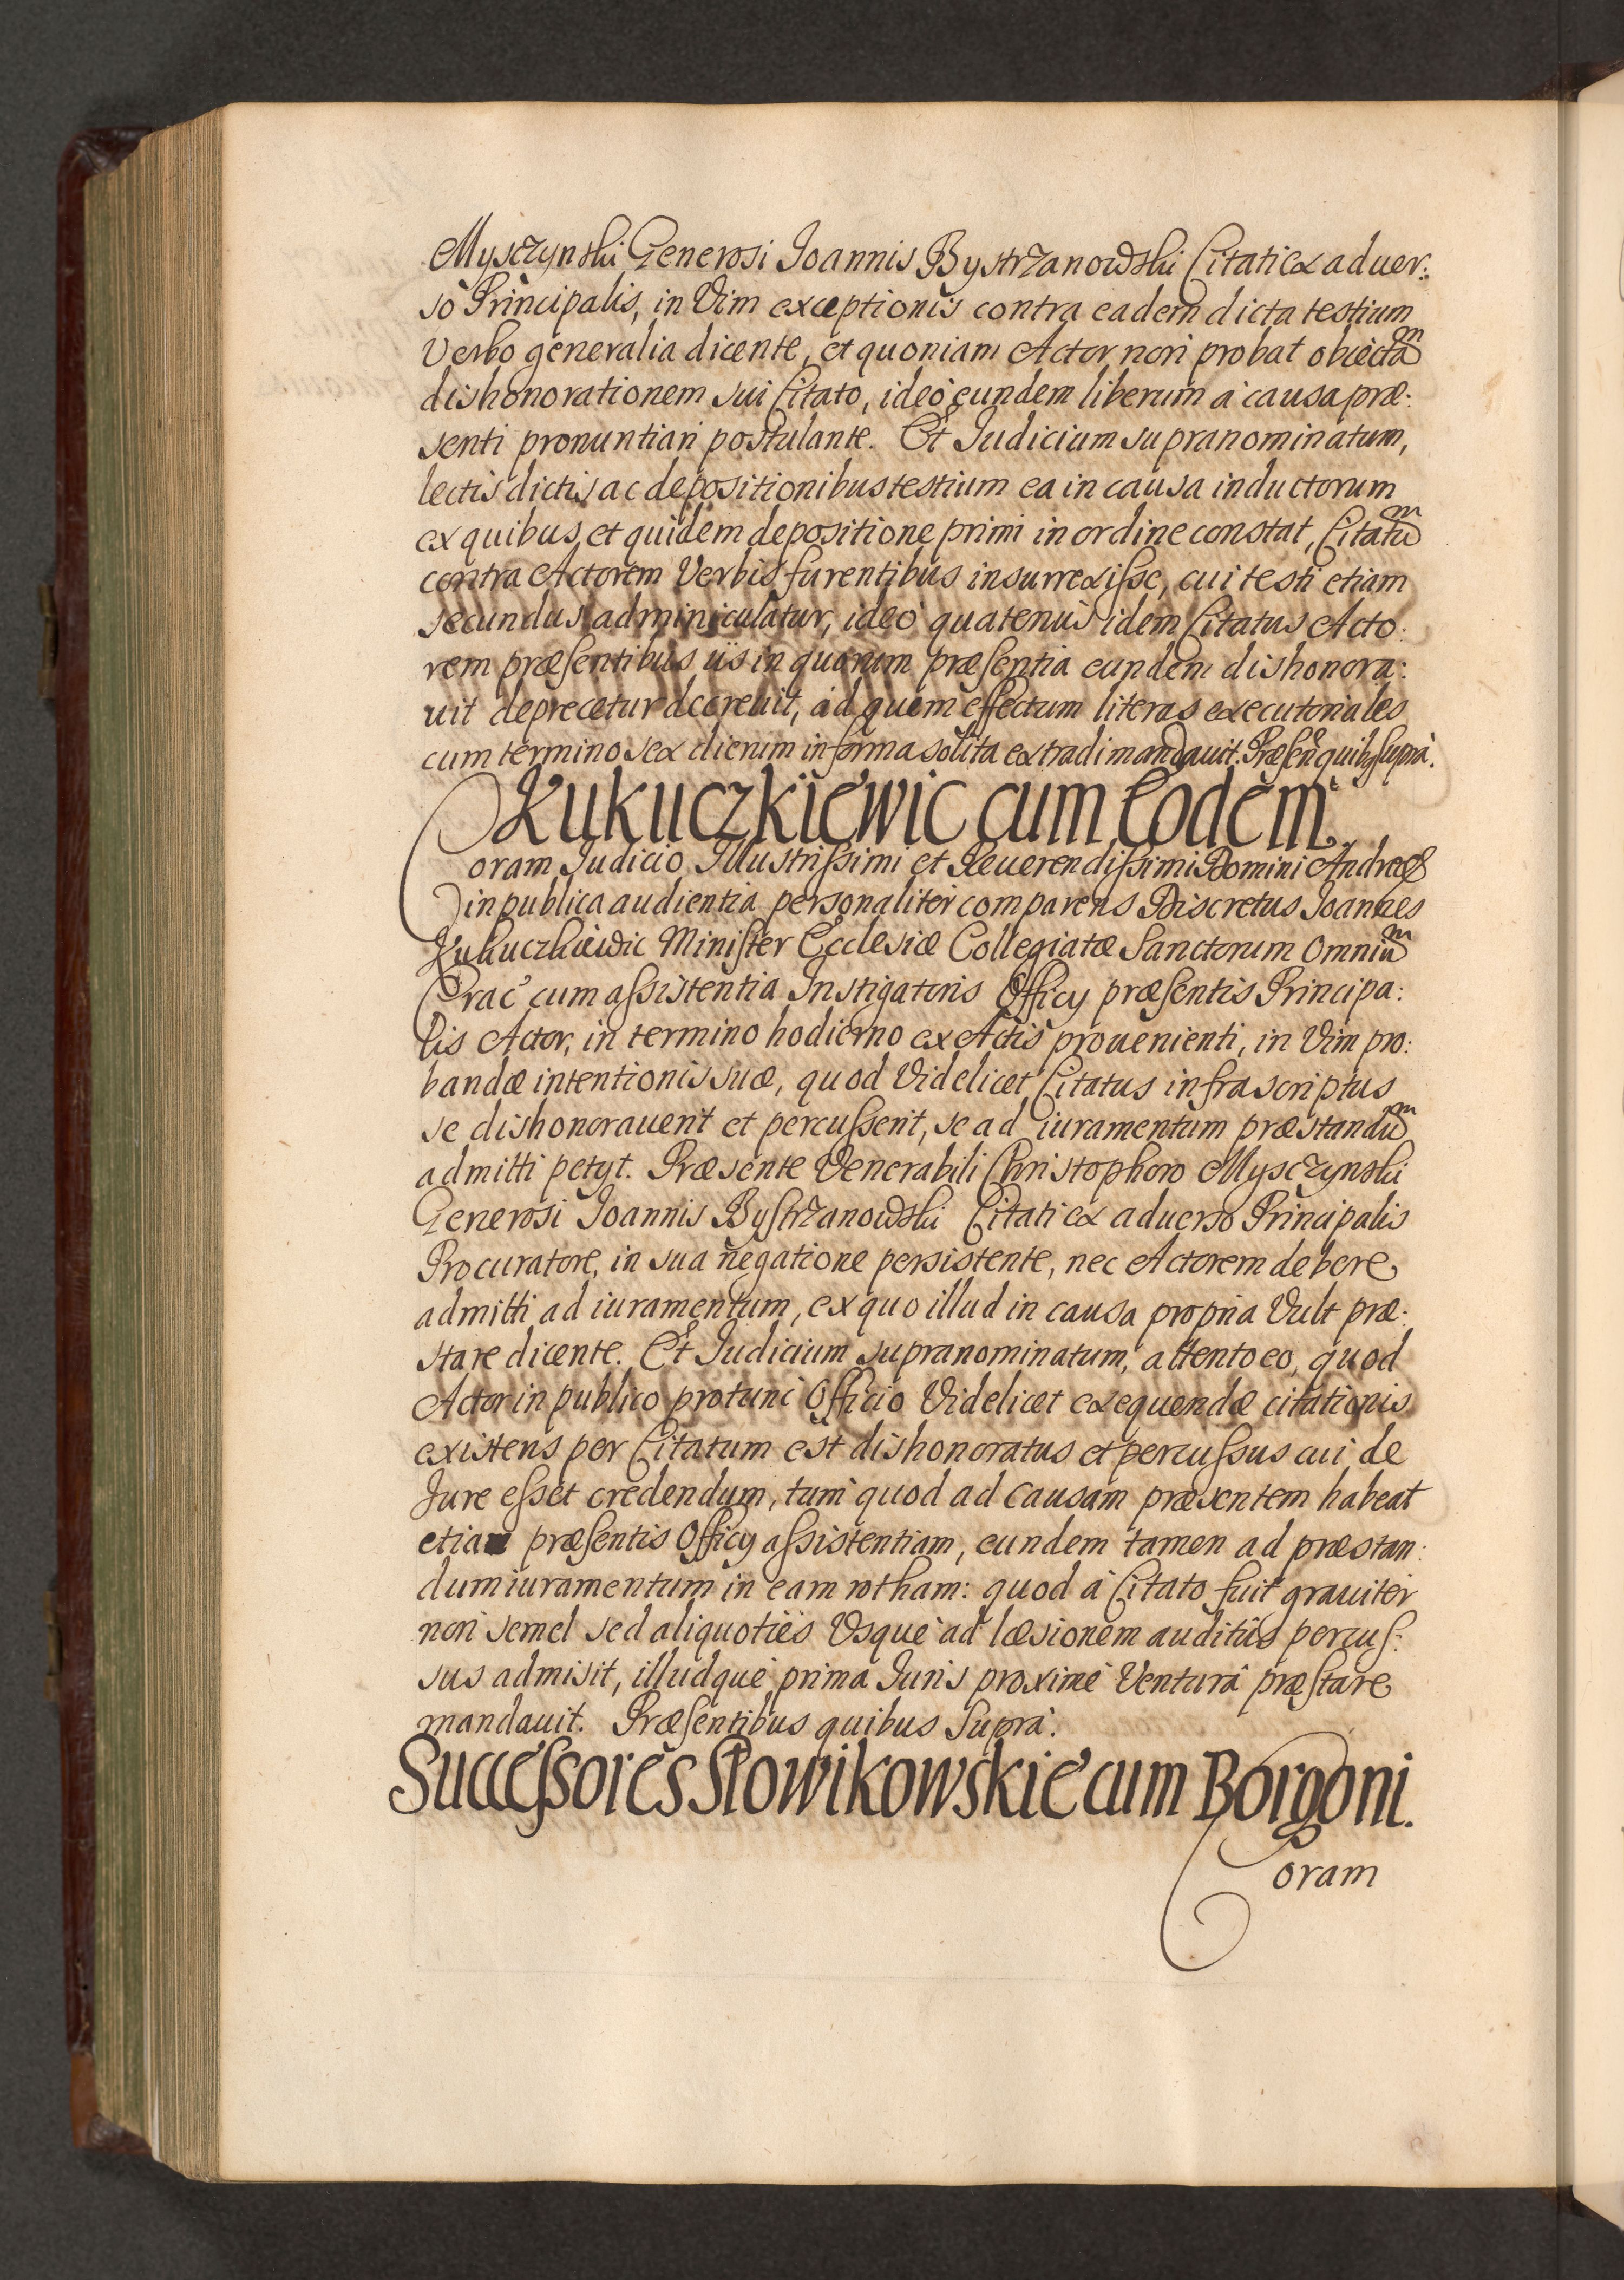 Mysczynski Generosi Joannis Bystrzanowski Citati ex aduer:
so Principalis, in Vim exceptionis contra eadem dicta testium
Verbo generalia dicente, et quoniam Actor non probat obiectam
dishonorationem sui Citato, ideò eundem liberum à causa præ:
senti pronuntiari postulante. Et Judicium supranominatum,
lectis dictis ac depositionibus testium ea in causa inductorum
ex quibus, et quidem depositione primi in ordine constat, Citatum
contra Actorem Verbis furentibus insurrexiſse, cui testi etiam
secundus adminiculatur, ideò quatenùs idem Citatus Acto:
rem præſentibus iis in quorum præſentia eundem dishonora:
uit deprecetur decreuit, ad quem effectum literas executoriales
cum termino sex dierum in forma solita extradi mandauit. Præſen quibꝫ suprà.
Kukuczkiewic cum Eodem.
Coram Judicio Illustriſsimi et Reuerendiſsimi Domini Andreæ
in publica audientia personaliter comparens Discretus Joannes
Kukuczkiewic Miniſter Ecclesiæ Collegiatæ Sanctorum Omnium
Crac cum aſsistentia Instigatoris Officy præſentis Principa:
lis Actor, in termino hodierno ex Actis prouenienti, in Vim pro:
bandæ intentionis suæ, quod Videlicet Citatus infrascriptus
se dishonorauerit et percuſserit, se ad iuramentum præstandum
admitti petyt. Præsente Venerabili Christophoro Mysczynski
Generosi Joannis Byſtrzanowski Citati ex aduerso Principalis
Procuratore, in sua negatione persistente, nec Actorem debere
admitti ad iuramentum, ex quo illud in causa propria Vult præ:
stare dicente. Et Judicium supranominatum, attento eo, quod
Actor in publico protunc Officio Videlicet exequendæ citationis
existens per Citatum est dishonoratus et percuſsus cui de
Jure eſset credendum, tum quod ad causam præsentem habeat
etiam præſentis Officy aſsistentiam, eundem tamen ad præstan:
dum iuramentum in eam rotham: quod à Citato fuit grauiter
non semel sed aliquoties Vsque ad læsionem auditûs percuſ:
sus admisit, illudque prima Juris proximè Venturâ præſtare
mandauit. Præſentibus quibus Suprà.
Succeſsores Słowikowskie cum Borgoni.
Coram